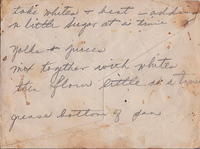 take whites & beat - adding
a little sugar at a time
yolks & juices
mix together with whites
then flour little at a time
grease bottom of pan